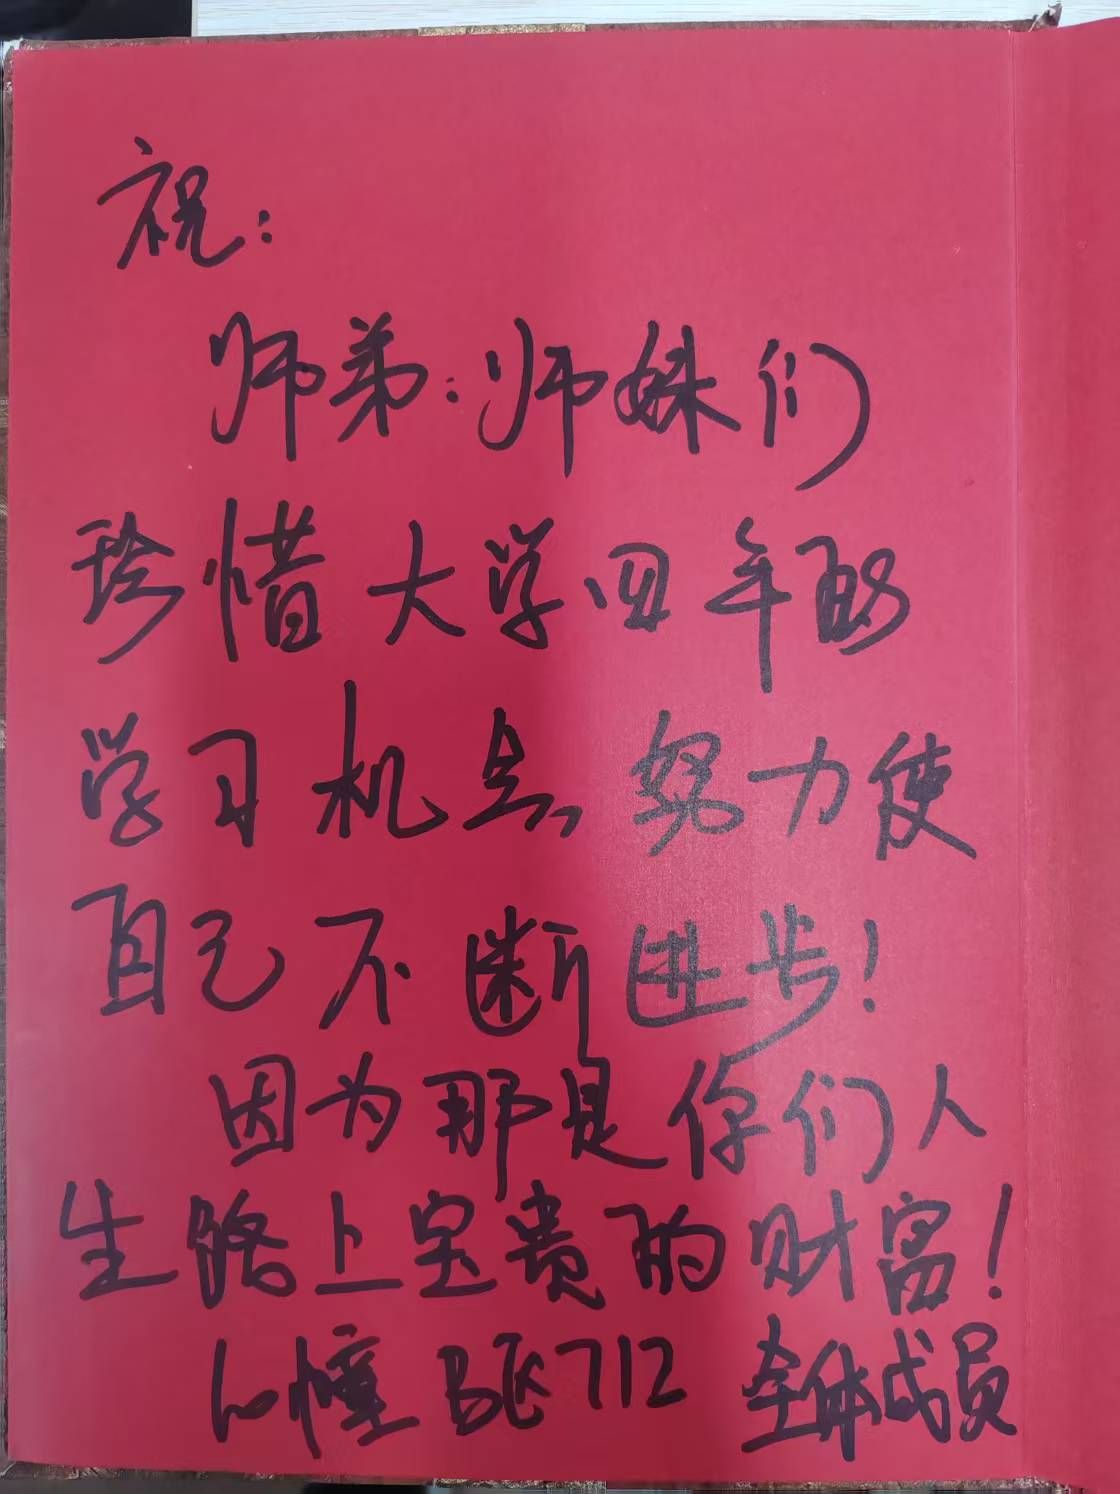 祝:
师弟:师妹们
珍惜大学四年的
学习机会,努力使
自己不断进步!
因为那是你们人
生路上宝贵的财富!
心憧 BE712 全体成员